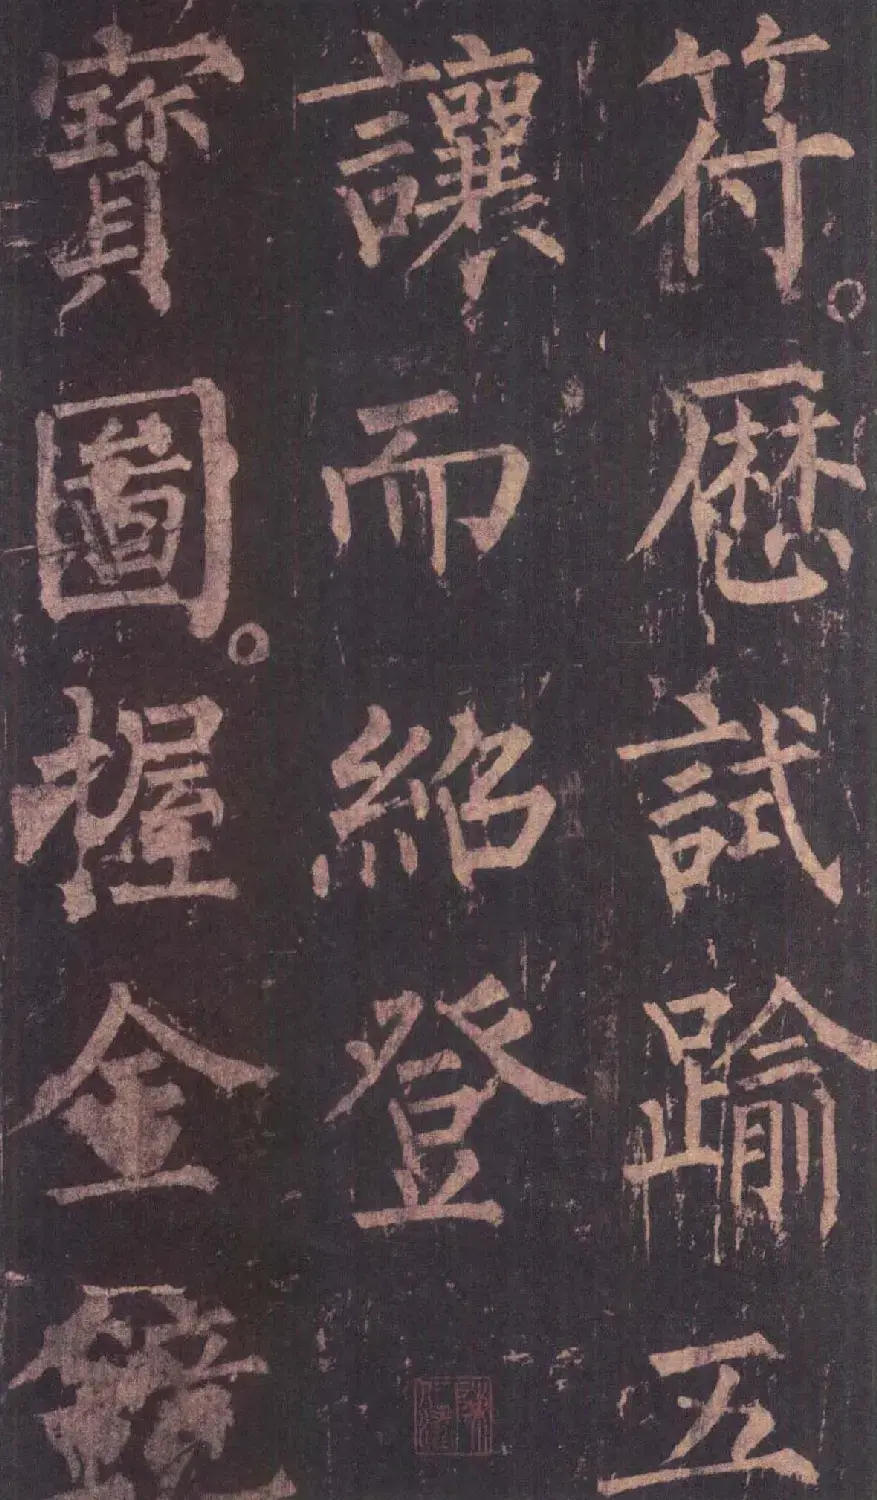 符。歴試踰五
讓而紹登
寶圖。握金鏡